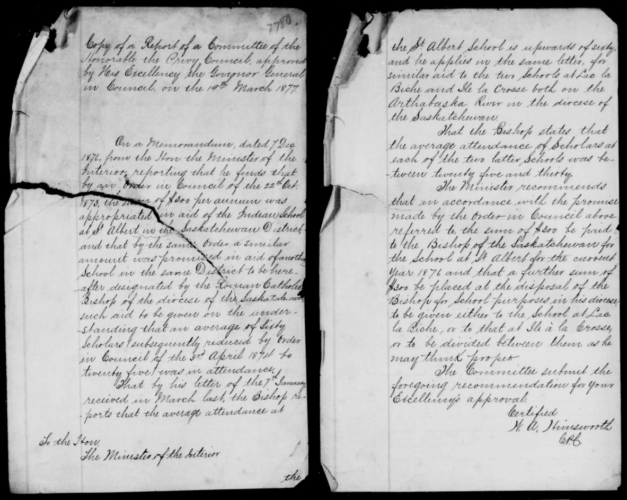 7780
Copy of a Report of a Committee of the
Honorable the Privy Council, approved
by His Excellency the Governor General
in Council, on the March 1877
On a Memorandum, dated 7 Dec
1876, from the Hon the Minister of the
Interior, reporting that he finds that
by an Order in Council of the Oct
1873, the sum of $300 per annum was
appropriated in aid of the Indian School
at St Albert in the Saskatchewan District
and that by the same Order a similar
amount was promised in aid of another
School in the same District to be here-
after designated by the Roman Catholic
Bishop of the diocese of the Saskatchewan
such aid to be given on the under-
standing that an average of Sixty
Scholars (subsequently reduced by Order
in Council of the 3rd April 1874 to
twenty five) was in attendance.
That by his letter of the 7th January
received in March last, the Bishop re-
ports that the average attendance at
To the Hon.
The Minister of the Interior
the
the St Albert School is upwards of sixty
and he applies in the same letter, for
similar aid to the two Schools at Lac la
Biche and Ile la Crosse both on the
Arthabaska River in the diocese of
the Saskatchewan
That the Bishop states that
the average attendance of Scholars at
each of the two latter Schools was be-
tween twenty five and thirty.
The Minister recommends
that in accordance with the promise
made by the Order in Council above
referred to the sum of $300 be paid
to the Bishop of the Saskatchewan for
the School at St Albert for the current
Year 1876 and that a further sum of
$300 be placed at the disposal of the
Bishop for School purposes in his diocese
to be given either to the School at Lac
la Biche, or to that at Ile à la Crosse,
or to be divided between them as he
may think proper
The Committee submit the
foregoing recommendation for Your
Excellency's approval
Certified
W. A. Himsworth
CPC